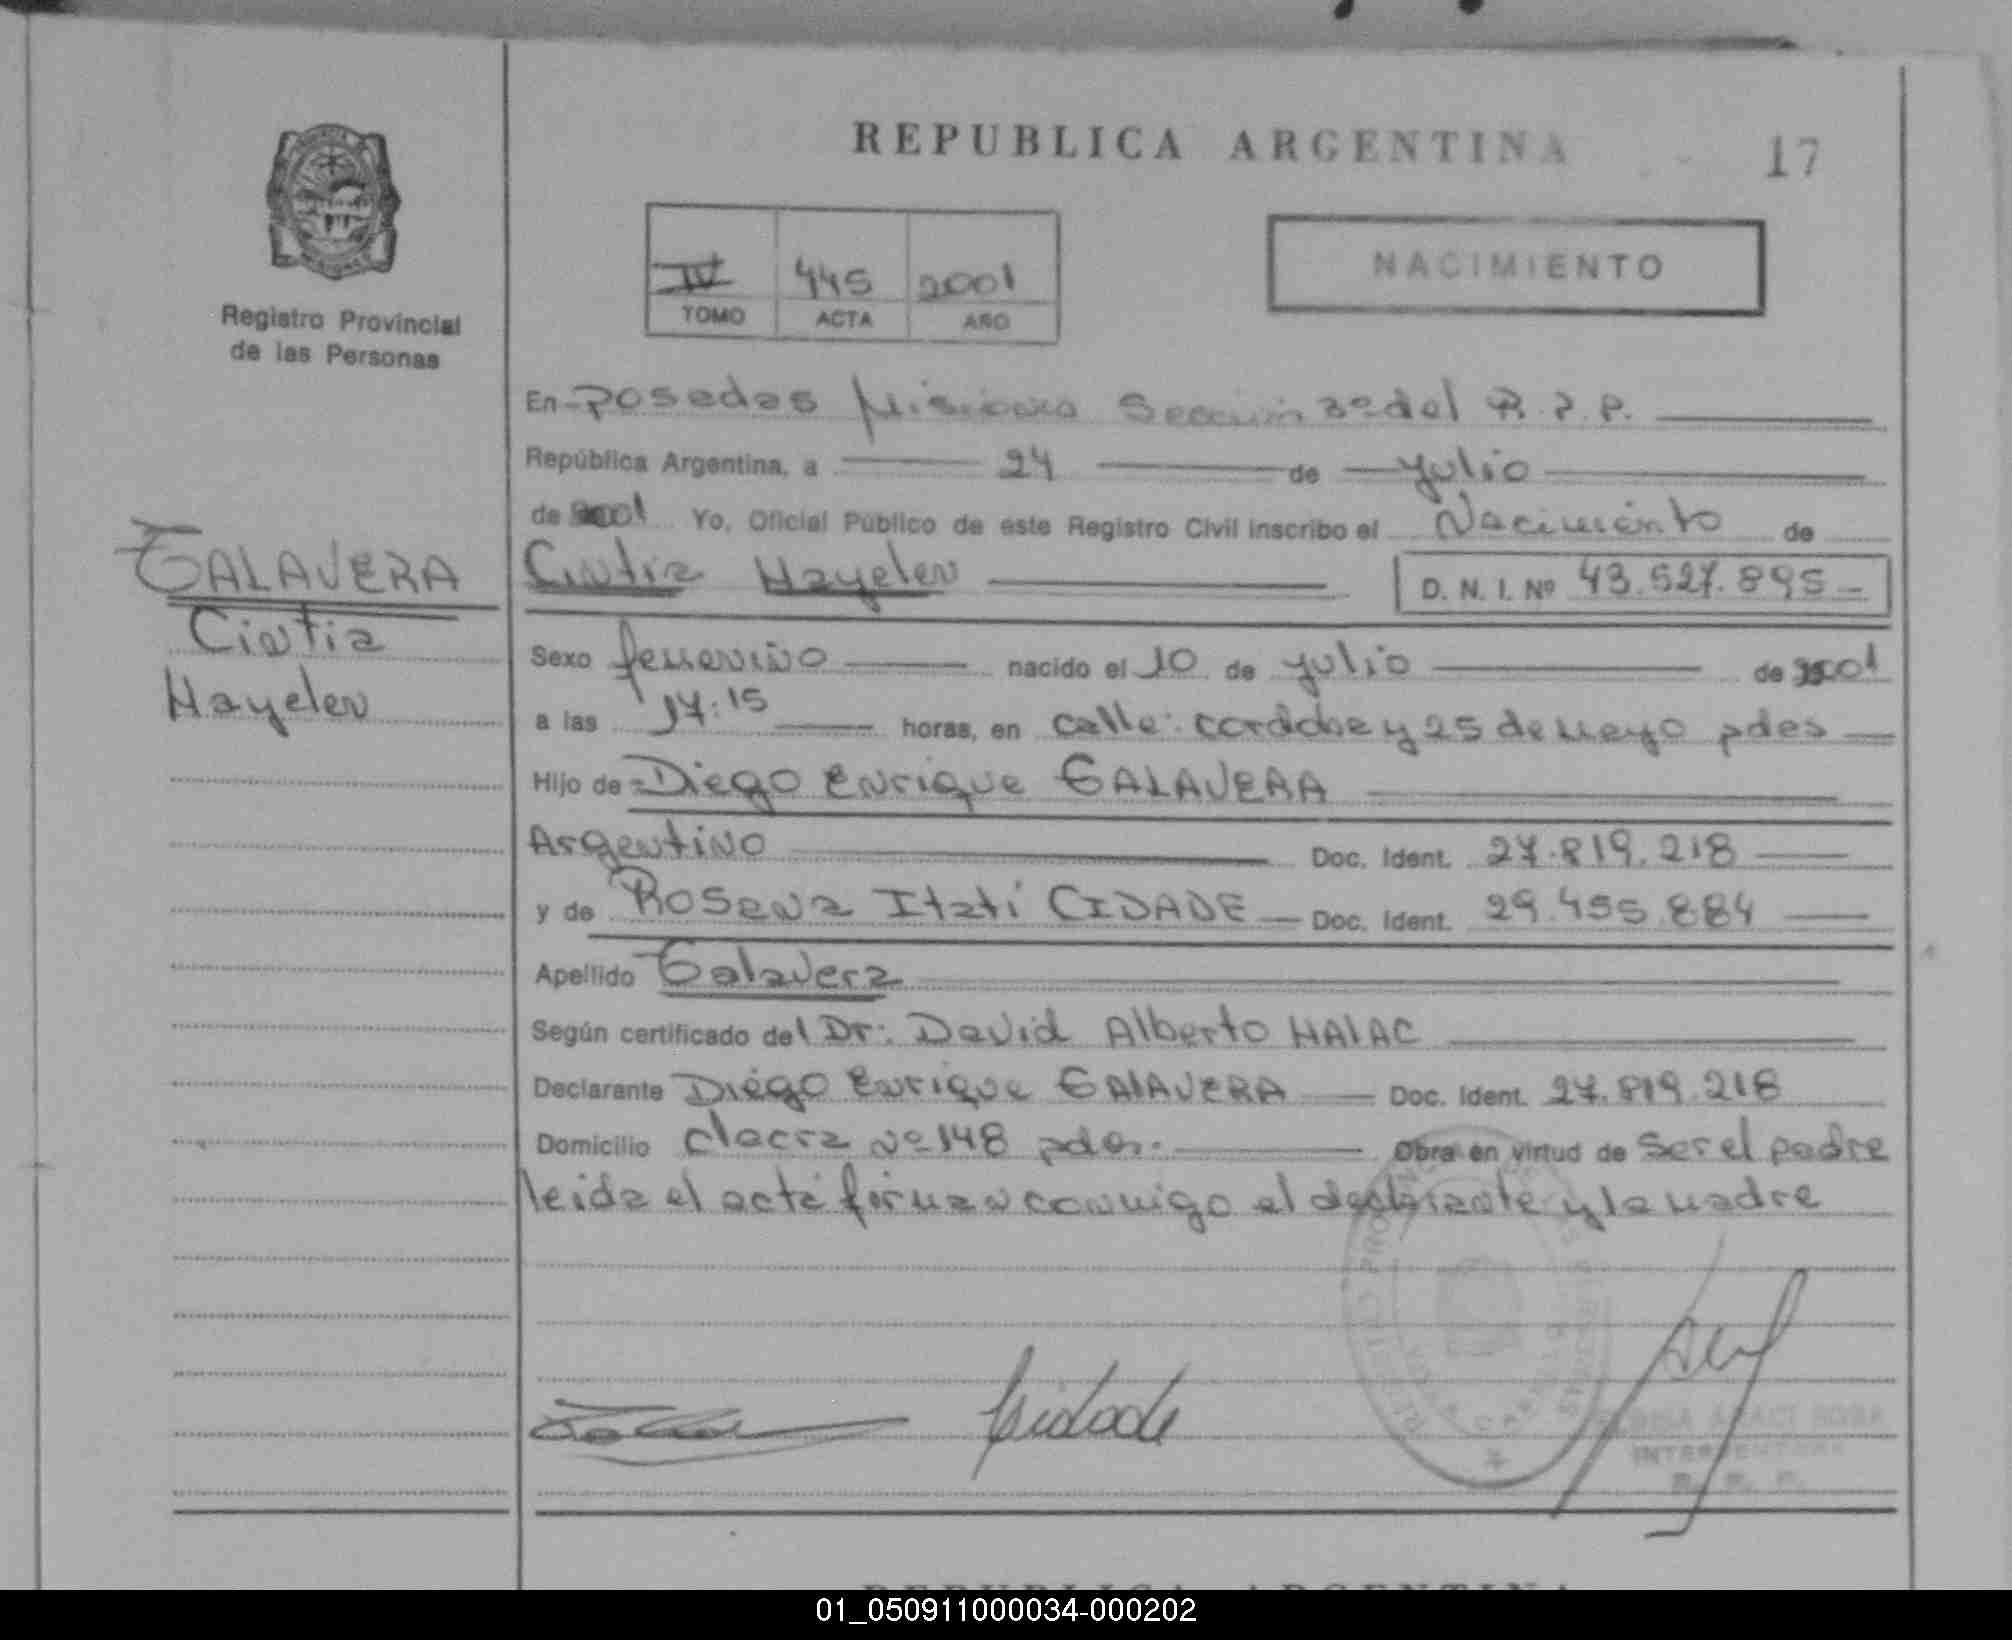 REPUBLICA ARGENTINA
17
Registro Provincial
de las Personas
IV 445 2001
TOMO ACTA AÑO
NACIMIENTO
En Posadas Misiones Sección 3º del R.P.P.
República Argentina, a 24 de julio
de 2001 Yo, Oficial Público de este Registro Civil inscribo el Nacimiento de
Cintia Hayelen D. N. I. Nº 43.527.895
GALAVERA
Cintia
Hayelen
Sexo femenino nacido el 10 de julio de 2001
a las 17:15 horas, en calle: cordoba y 25 de mayo pdas
Hijo de Diego Enrique GALAVERA
Argentino Doc. Ident. 27.819.218
y de Rosana Itatí CIDADE Doc. Ident. 29.455.884
Apellido Galavera
Según certificado del Dr: David Alberto HALAC
Declarante Diego Enrique GALAVERA Doc. Ident. 27.819.218
Domicilio chacra Nº 148 pdas. Obra en virtud de ser el padre
leida el acta firman conmigo el declarante y la madre
Cidade
01_050911000034-000202